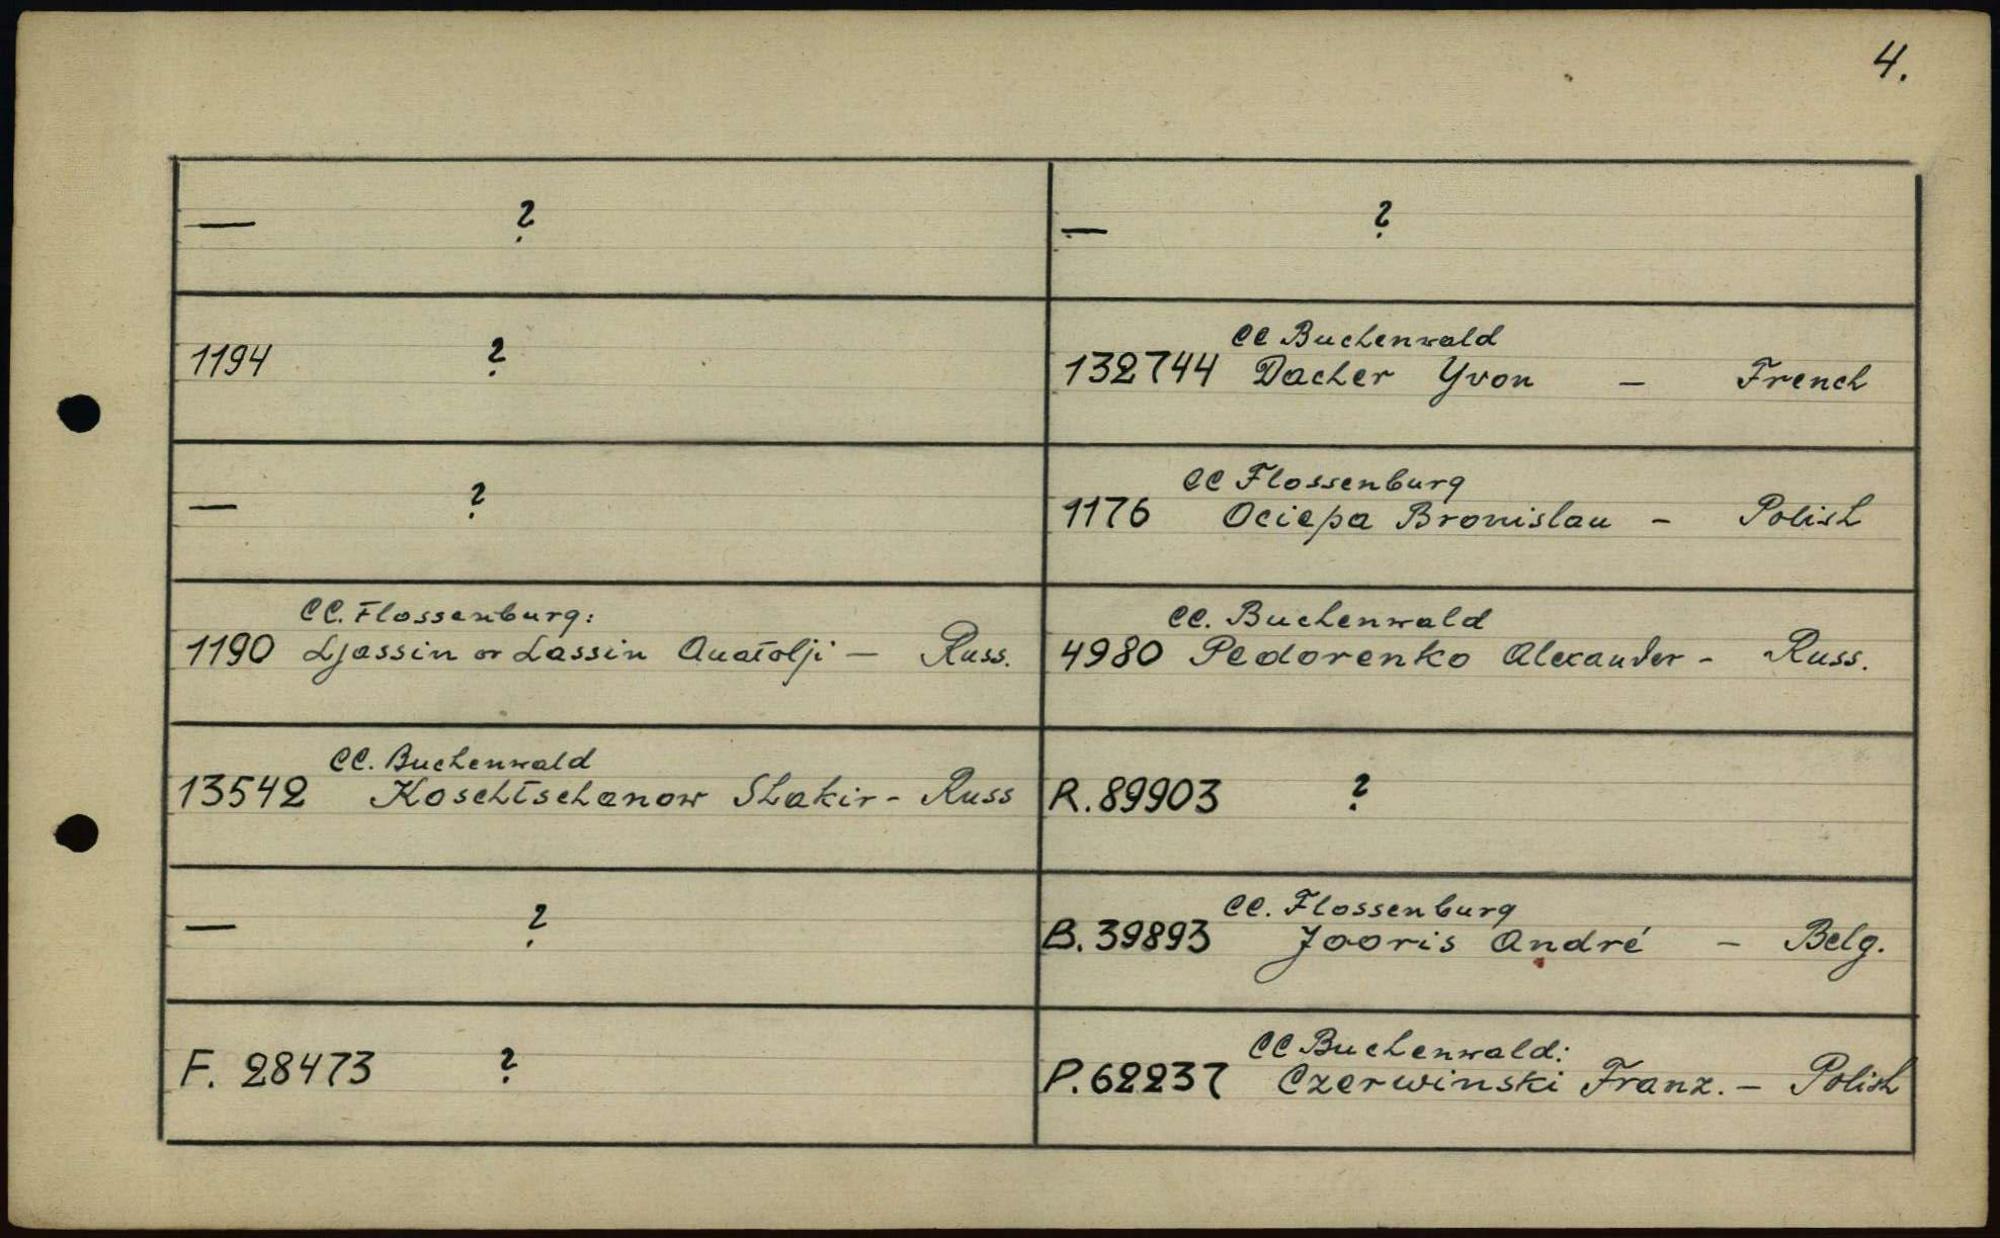 4.
— ?
— ?
1194 ?
CC Buchenwald
132744 Dacher Yvon — French
— ?
CC Flossenburg
1176 Ociepa Bronislau - Polish
CC. Flossenburg:
1190 Ljassin or Lassin Anatolji — Russ.
CC. Buchenwald
4980 Pedorenko Alexander - Russ.
CC. Buchenwald
13542 Koschtschanow Shakir - Russ
R. 89903 ?
— ?
CC. Flossenburg
B. 39893 Jooris André — Belg.
F. 28473 ?
CC Buchenwald:
P. 62237 Czerwinski Franz. — Polish